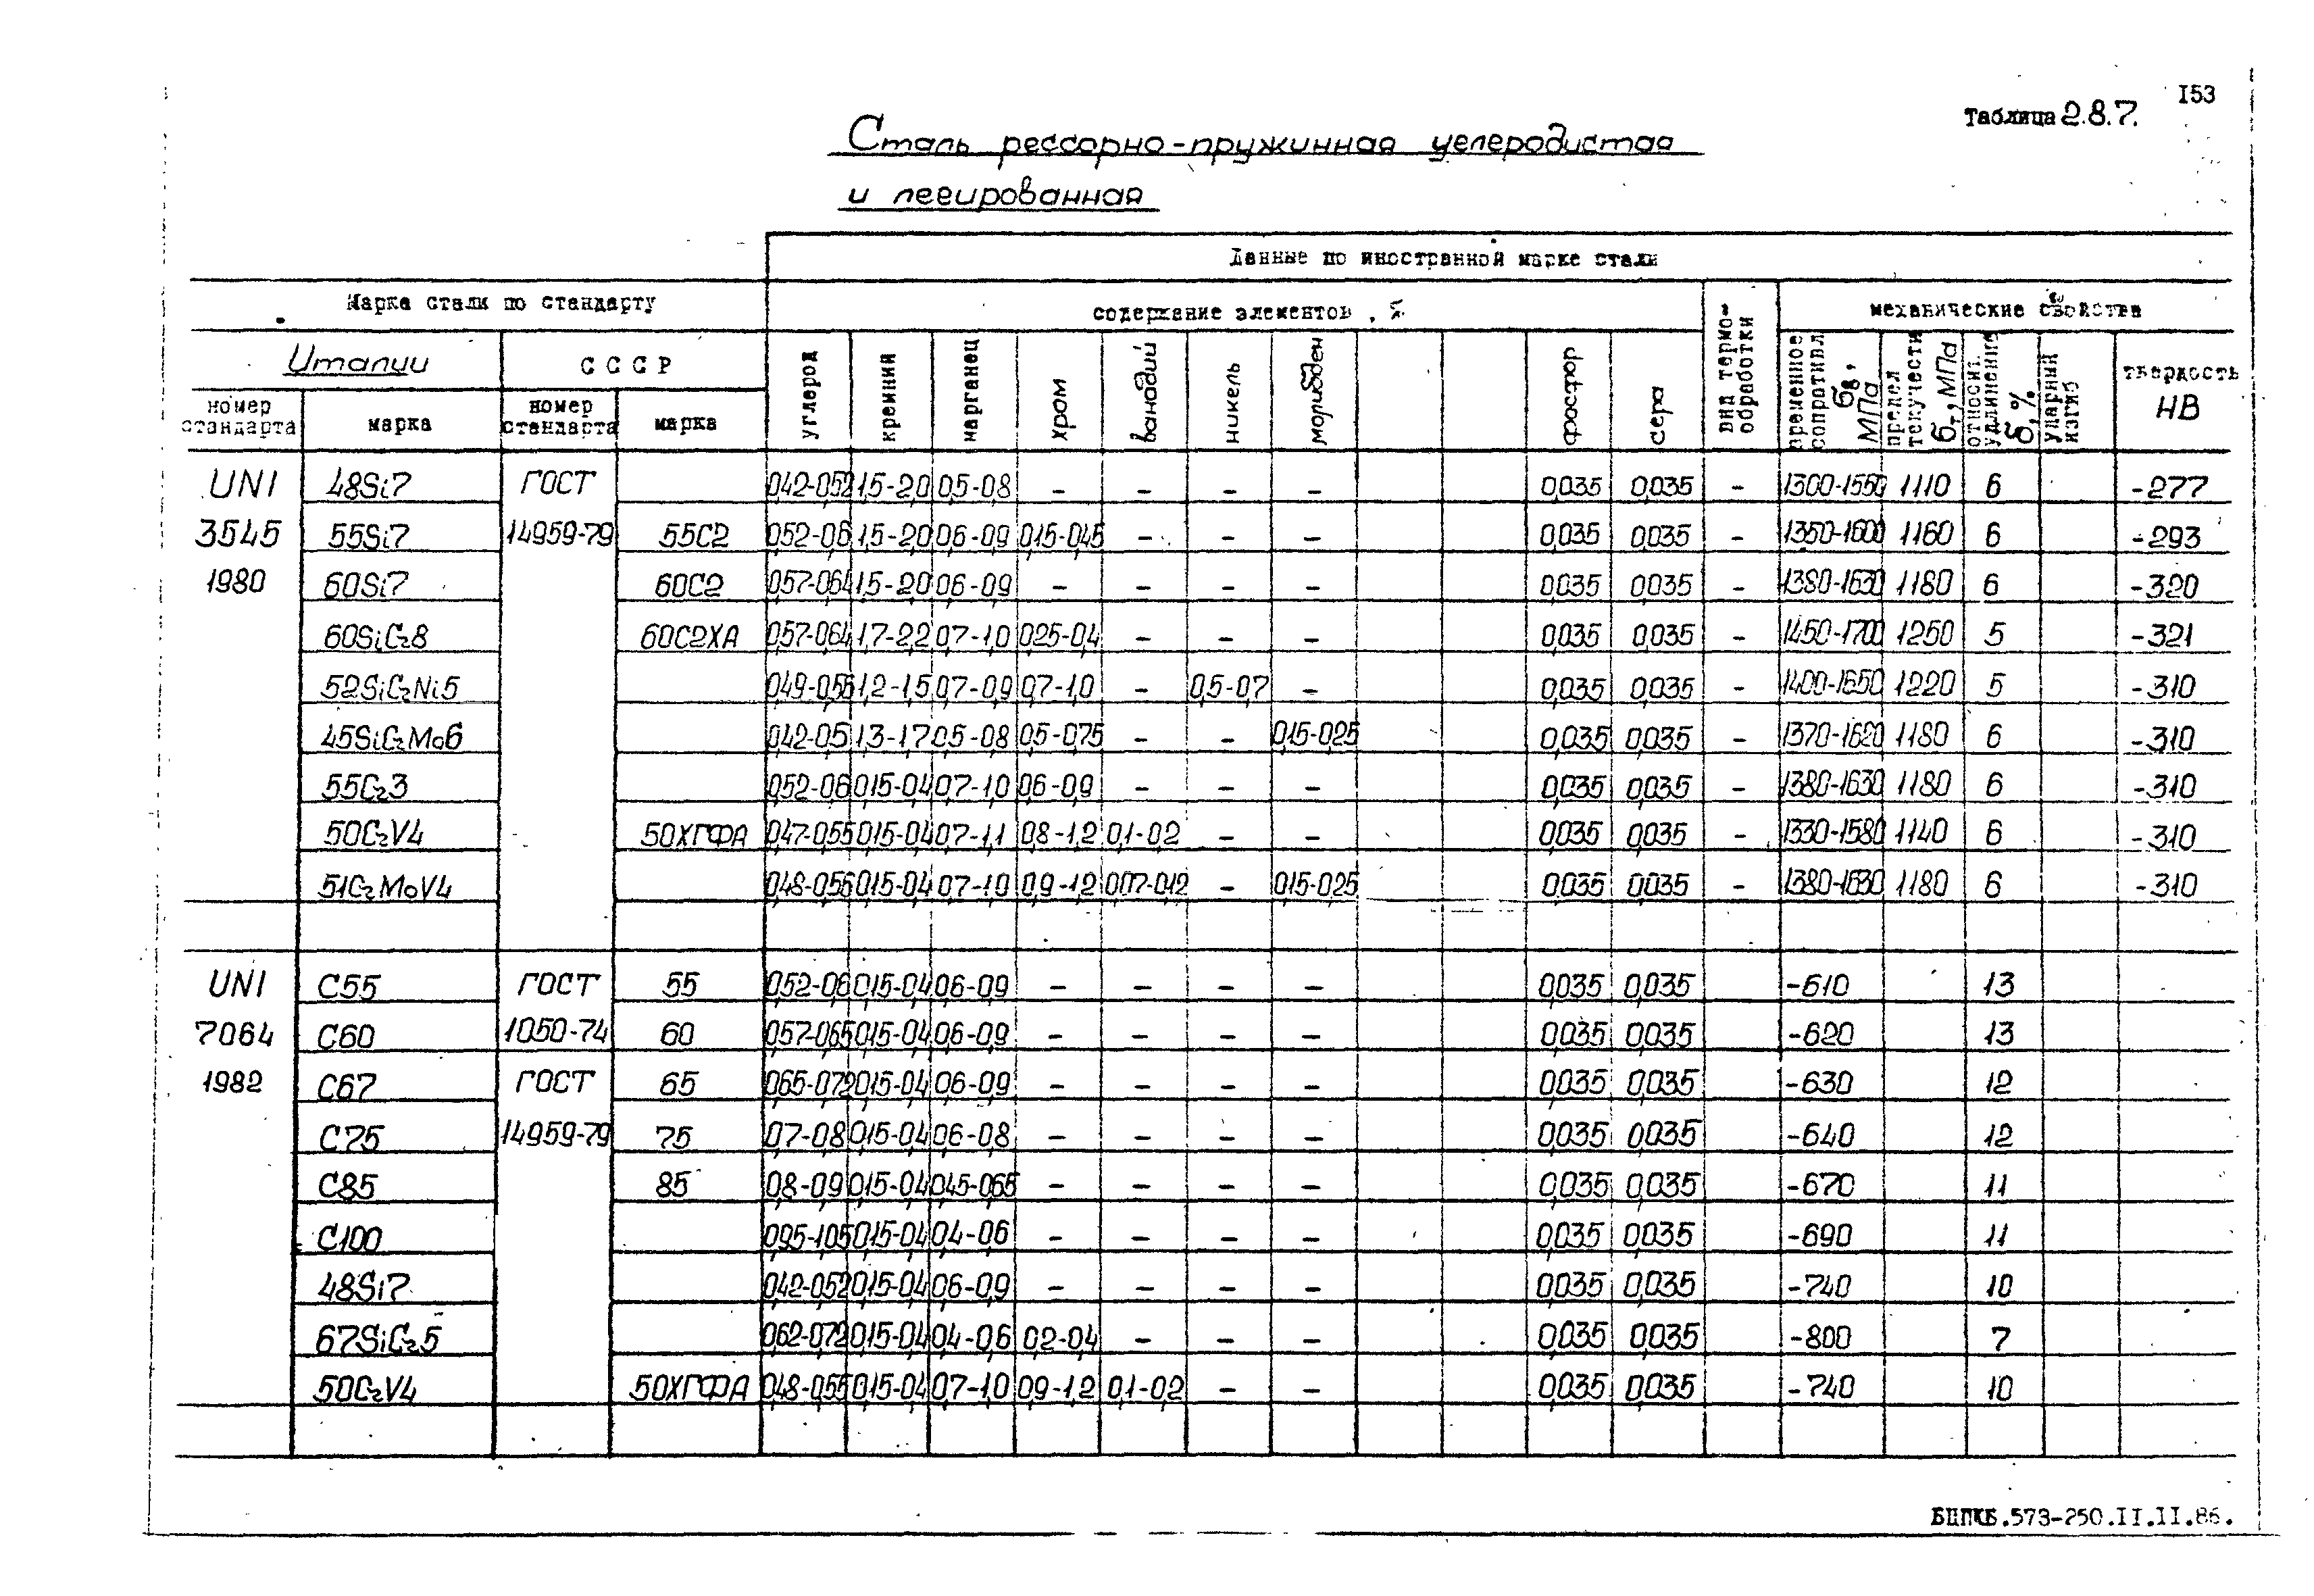 I53
Таблица 2.8.7.
Сталь рессорно-пружинная углеродистая
и легированная
Данные по иностранной марке стали
Марка стали по стандарту содержание элементов, % вид термо-обработки механические свойства
Италии СССР углерод кремний марганец хром ванадий никель молибден фосфор сера временное сопротивл. σв, МПа предел текучести σт, МПа относит. удлинение δ, % ударный изгиб твердость НВ
номер стандарта марка номер стандарта марка
UNI 48Si7 ГОСТ 0,42-0,52 1,5-2,0 0,5-0,8 – – – – 0,035 0,035 – 1300-1550 1110 6 -277
3545 55Si7 14959-79 55С2 0,52-0,6 1,5-2,0 0,6-0,9 0,15-0,45 – – – 0,035 0,035 – 1350-1600 1160 6 -293
1980 60Si7 60С2 0,57-0,64 1,5-2,0 0,6-0,9 – – – – 0,035 0,035 – 1380-1630 1180 6 -320
60SiCr8 60С2ХА 0,57-0,64 1,7-2,2 0,7-1,0 0,25-0,4 – – – 0,035 0,035 – 1450-1700 1250 5 -321
52SiCrNi5 0,49-0,56 1,2-1,5 0,7-0,9 0,7-1,0 – 0,5-0,7 – 0,035 0,035 – 1400-1650 1220 5 -310
45SiCrMo6 0,42-0,5 1,3-1,7 0,5-0,8 0,5-0,75 – – 0,15-0,25 0,035 0,035 – 1370-1620 1180 6 -310
55Cr3 0,52-0,6 0,15-0,4 0,7-1,0 0,6-0,9 – – – 0,035 0,035 – 1380-1630 1180 6 -310
50CrV4 50ХГФА 0,47-0,55 0,15-0,4 0,7-1,1 0,8-1,2 0,1-0,2 – – 0,035 0,035 – 1330-1580 1140 6 -310
51CrMoV4 0,48-0,56 0,15-0,4 0,7-1,0 0,9-1,2 0,07-0,12 – 0,15-0,25 0,035 0,035 – 1380-1630 1180 6 -310
UNI C55 ГОСТ 55 0,52-0,6 0,15-0,4 0,6-0,9 – – – – 0,035 0,035 -610 13
7064 C60 1050-74 60 0,57-0,65 0,15-0,4 0,6-0,9 – – – – 0,035 0,035 -620 13
1982 C67 ГОСТ 65 0,65-0,72 0,15-0,4 0,6-0,9 – – – – 0,035 0,035 -630 12
C75 14959-79 75 0,7-0,8 0,15-0,4 0,6-0,8 – – – – 0,035 0,035 -640 12
C85 85 0,8-0,9 0,15-0,4 0,45-0,65 – – – – 0,035 0,035 -670 11
C100 0,95-1,05 0,15-0,4 0,4-0,6 – – – – 0,035 0,035 -690 11
48Si7 0,42-0,52 0,15-0,4 0,6-0,9 – – – – 0,035 0,035 -740 10
67SiCr5 0,62-0,72 0,15-0,4 0,4-0,6 0,2-0,4 – – – 0,035 0,035 -800 7
50CrV4 50ХГФА 0,48-0,55 0,15-0,4 0,7-1,0 0,9-1,2 0,1-0,2 – – 0,035 0,035 -740 10
БЦПКБ.573-250.II.II.86.